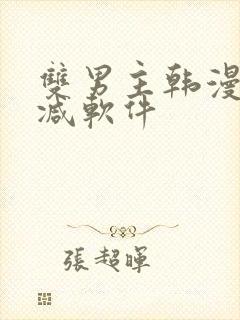 雙男主韩漫
减軟件
張超暉